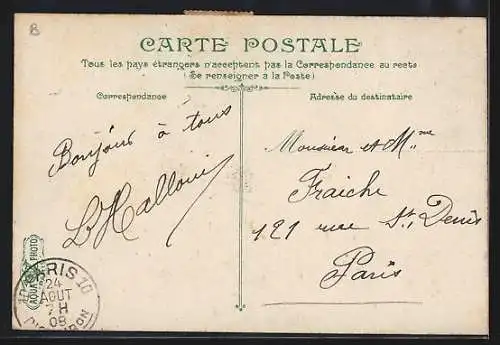 B
CARTE POSTALE
Tous les pays étrangers n'acceptent pas la Correspondance au recto
(Se renseigner à la Poste)
Correspondance
Adresse du destinataire
Bonjour à tous
Monsieur et Mme
Fraiche
121 rue St. Denis
Paris
AQUA PHOTO
10 PARIS 10
24
AOUT
08